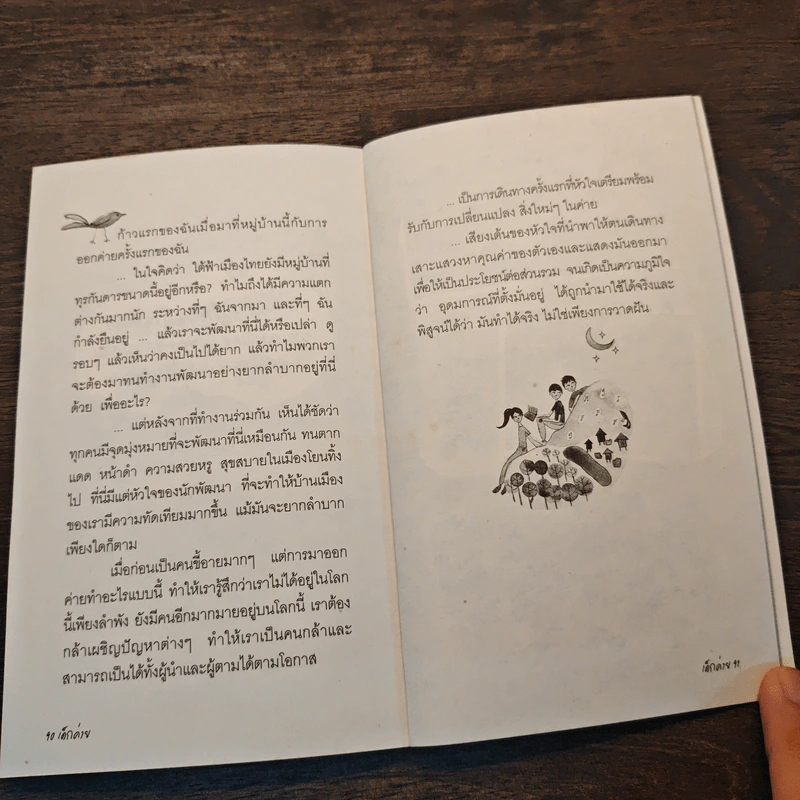 ก้าวแรกของฉันเมื่อมาที่หมู่บ้านนี้กับการ
ออกค่ายครั้งแรกของฉัน
... ในใจคิดว่า ใต้ฟ้าเมืองไทยยังมีหมู่บ้านที่
ทุรกันดารขนาดนี้อยู่อีกหรือ? ทำไมถึงได้มีความแตก
ต่างกันมากนัก ระหว่างที่ๆ ฉันจากมา และที่ๆ ฉัน
กำลังยืนอยู่ ... แล้วเราจะพัฒนาที่นี่ได้หรือเปล่า ดู
รอบๆ แล้วเห็นว่าคงเป็นไปได้ยาก แล้วทำไมพวกเรา
จะต้องมาทนทำงานพัฒนาอย่างยากลำบากอยู่ที่นี่
ด้วย เพื่ออะไร?
... แต่หลังจากที่ทำงานร่วมกัน เห็นได้ชัดว่า
ทุกคนมีจุดมุ่งหมายที่จะพัฒนาที่นี่เหมือนกัน ทนตาก
แดด หน้าดำ ความสวยหรู สุขสบายในเมืองโยนทิ้ง
ไป ที่นี่มีแต่หัวใจของนักพัฒนา ที่จะทำให้บ้านเมือง
ของเรามีความทัดเทียมมากขึ้น แม้มันจะยากลำบาก
เพียงใดก็ตาม
เมื่อก่อนเป็นคนขี้อายมากๆ แต่การมาออก
ค่ายทำอะไรแบบนี้ ทำให้เรารู้สึกว่าเราไม่ได้อยู่ในโลก
นี้เพียงลำพัง ยังมีคนอีกมากมายอยู่บนโลกนี้ เราต้อง
กล้าเผชิญปัญหาต่างๆ ทำให้เราเป็นคนกล้าและ
สามารถเป็นได้ทั้งผู้นำและผู้ตามได้ตามโอกาส
๑๐ เด็กค่าย
... เป็นการเดินทางครั้งแรกที่หัวใจเตรียมพร้อม
รับกับการเปลี่ยนแปลง สิ่งใหม่ๆ ในค่าย
... เสียงเต้นของหัวใจที่นำพาให้ตนเดินทาง
เสาะแสวงหาคุณค่าของตัวเองและแสดงมันออกมา
เพื่อให้เป็นประโยชน์ต่อส่วนรวม จนเกิดเป็นความภูมิใจ
ว่า อุดมการณ์ที่ตั้งมั่นอยู่ ได้ถูกนำมาใช้ได้จริงและ
พิสูจน์ได้ว่า มันทำได้จริง ไม่ใช่เพียงการวาดฝัน
เด็กค่าย ๑๑